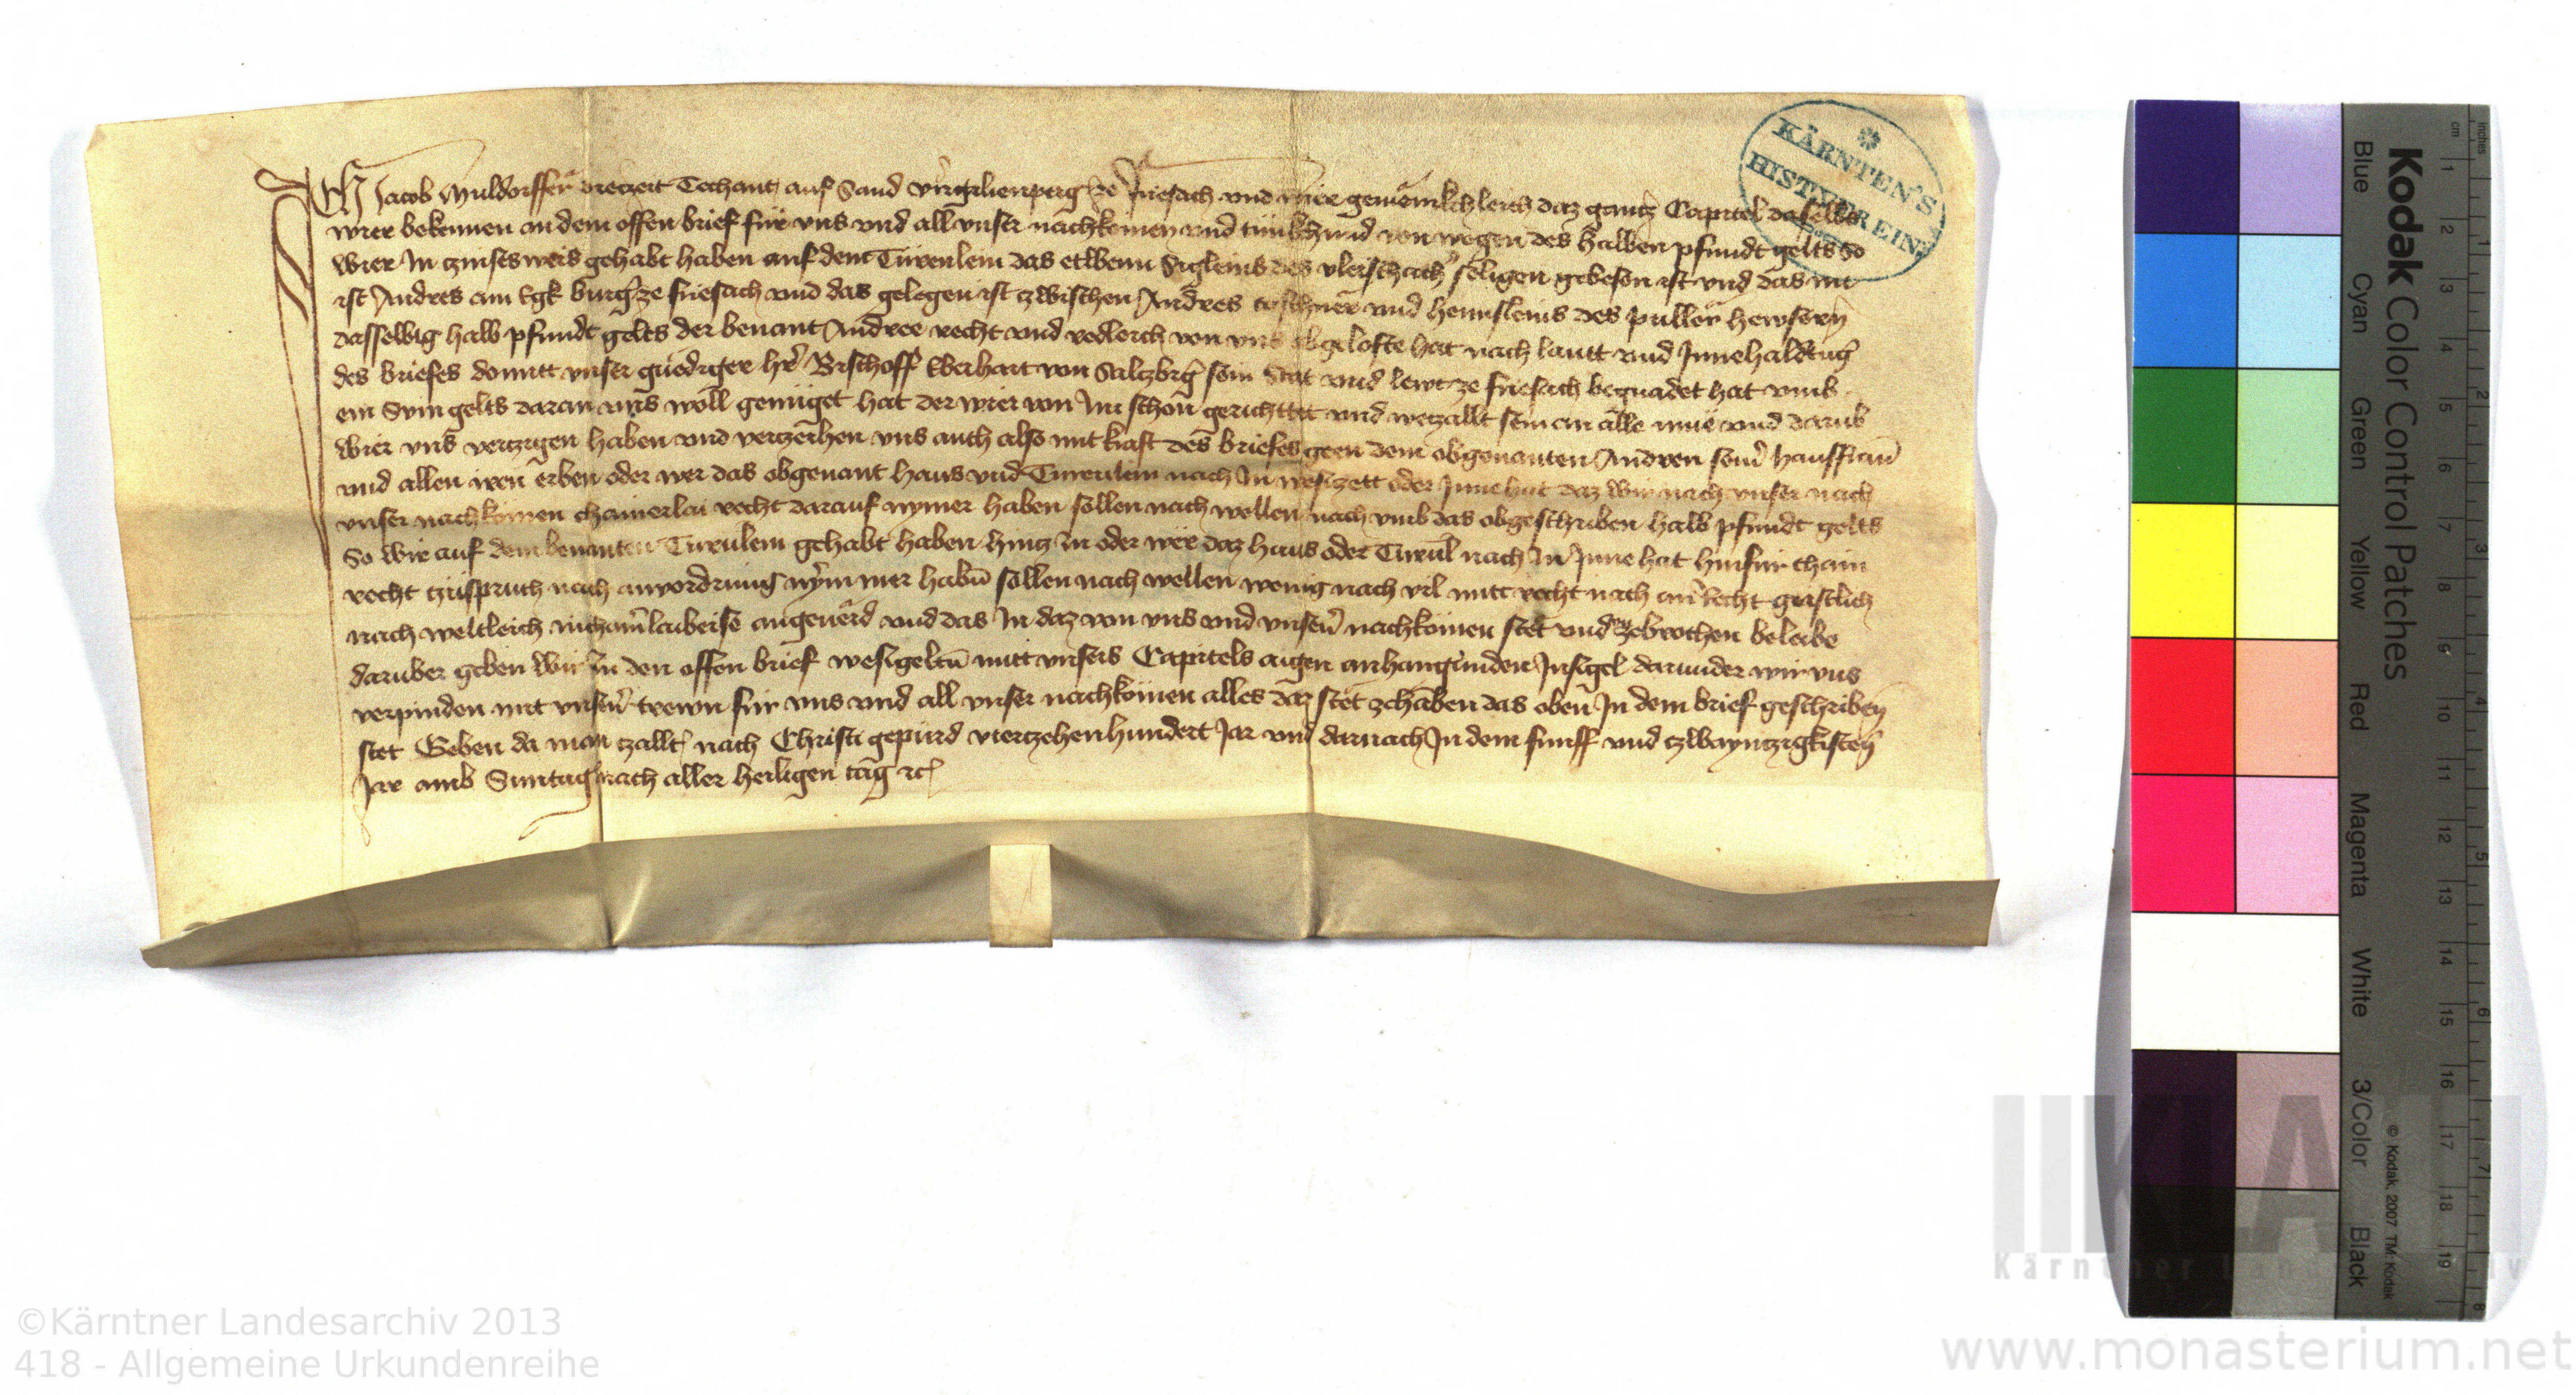 Ich Jacob Muldorffer diezeit Techant auf Sand virgilienperg ze Friesach vnd wier gemeinkchleich daz gantz Capitel daselbs
wier bekennen an dem offen brief für vns vnd all vnser nachkomen vnd tun kund von wegen des halben pfundt gelts So
wier In zinsts weis gehabt haben auf dem Türenlein das etlbenn Sigleins des vleischach seligen gebesen ist vnd das nu
ist Andres am Egk burger ze friesach vnd das gelegen ist zwischen Andres taschner vnd hennsleins des puller hewsern
dasselbig halb pfundt gelts der benant Andree recht vnd redleich von vns abgeloste hat nach lautt vnd Innehaldung
des briefes domitt vnser gnediger her Bischoff Eberhart von Saltzbrg sein Stat vnd lewt ze friesach begnadet hat vmb
ein Sum gelts daran vns woll genüget hat der wier von Im schon gerichttet vnd wetzallt sein an alle müe vnd darub
wier vns vertzigen haben vnd vertzeihen vns auch also mit kraft des briefes geen dem obgenanten Andren seiner hausfraun
vnd allen iren erben oder wer das obgenant haus vnd Turenlein nach In wesitzett oder Innehat daz wir nach vnser nach
vnser nachkomen chainerlai recht darauf nymer haben sollen nach wellen nach vmb das obgeschriben halb pfundt gelts
So wir auf dem benanten Turnlein gehabt haben hintz In oder wer daz haus oder Turnl nach In Inne hat hinfur chain
recht zuspruch nach anvordrung nymmer habn sollen nach wellen wenig nach vil mitt recht nach an recht geistlich
nach weltleich in chainerlaibeise angeuerd vnd das In daz von vns vnd vnsern nachkomen stet vnd vnzebrochen beleibe
daruber geben wir In den offen brief wesigeltn mitt vnsers Capitels aigen anhangunden Insigel darunder wir vns
verpinden mit vnsern trewn für vns vnd all vnser nachkömen alles daz stet zchaben das oben In dem brief geschriben
stet Geben da man tzallt nach Christi gepurd viertzehenhundert Jar vnd darnach In dem funff vnd zwayntzigkisten
Jar amb Suntag nach aller heiligen tag etc
KÄRNTEN'S
HIST. VEREIN
Kodak Color Control Patches
Blue Cyan Green Yellow Red Magenta White 3/Color Black
© Kodak, 2007 TM: Kodak
inches 1 2 3 4 5 6 7 8
cm 1 2 3 4 5 6 7 8 9 10 11 12 13 14 15 16 17 18 19
©Kärntner Landesarchiv 2013
418 - Allgemeine Urkundenreihe
www.monasterium.net